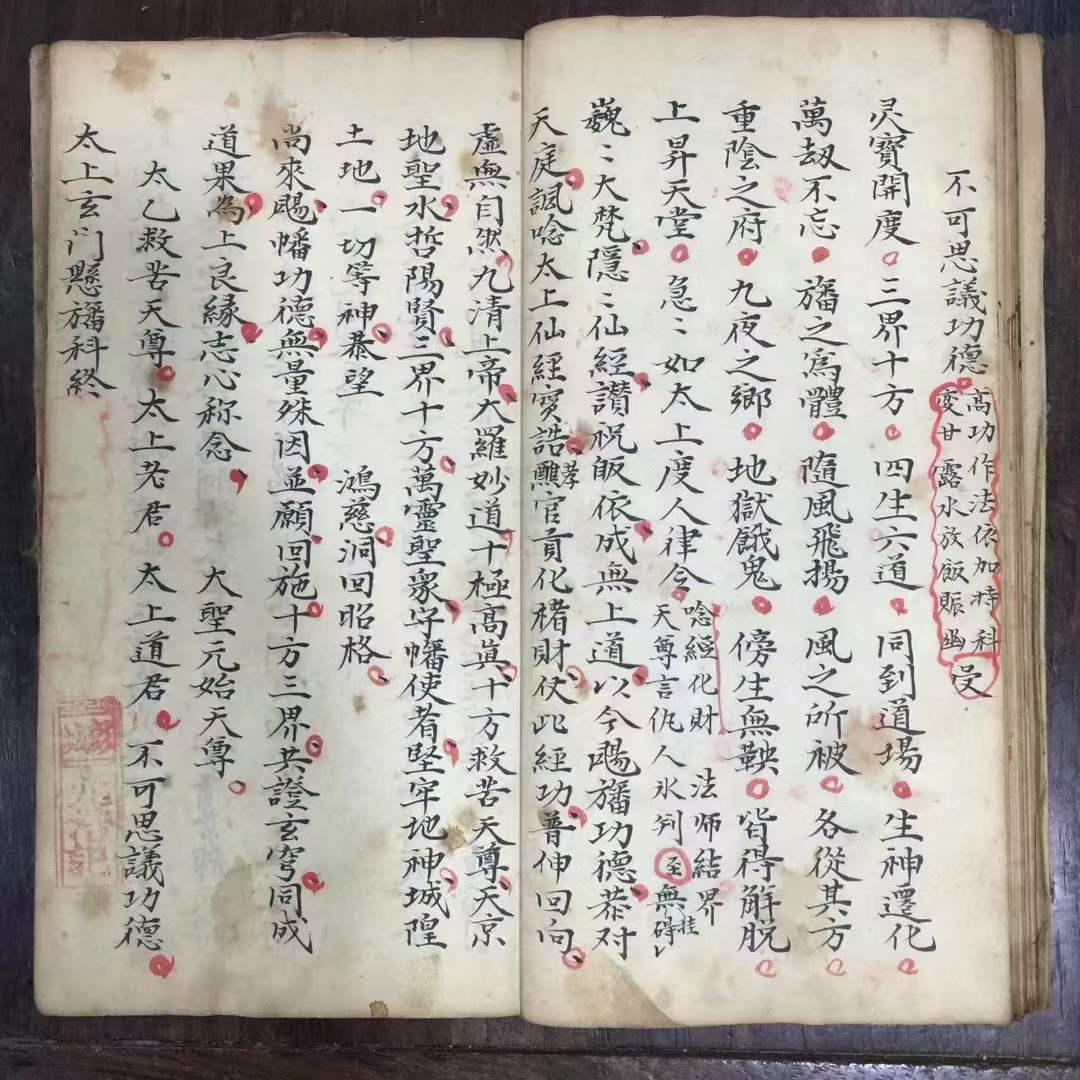 不可思議功德
高功作法依加持科
变甘露水放飯賑幽
受
灵寶開度三界十方四生六道同到道場生神遷化
萬劫不忘旛之爲體隨風飛揚風之所被各從其方
重陰之府九夜之鄉地獄餓鬼傍生無鞅皆得解脱
上昇天堂急〻如太上度人律令
唸經化財 法師結界
天尊言仉人氷判至無碍
挂
巍〻大梵隱〻仙經讃祝皈依成無上道以今颺旛功德恭对
天庭諷唸太上仙經宝誥醮官貢化楮財仗此經功普伸回向
孝
虛無自然九清上帝大羅妙道十極高眞十方救苦天尊天京
地聖水哲陽賢三界十方萬靈聖衆守幡使者堅牢地神城隍
土地一切等神恭望 鴻慈洞回昭格
尚來颺幡功德無量殊因並願回施十方三界共證玄穹同成
道果為上良縁志心称念 大聖元始天尊
太乙救苦天尊太上老君太上道君不可思議功德
太上玄门懸旛科終